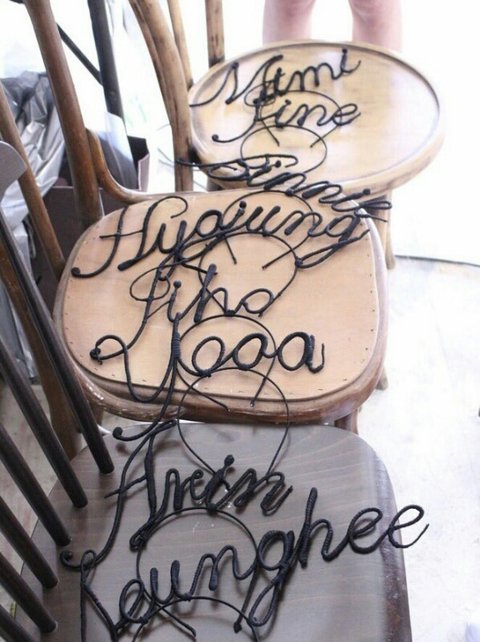 Mimi
Jine
Binnie
Hyojung
Jiho
Yooa
Arin
Seunghee